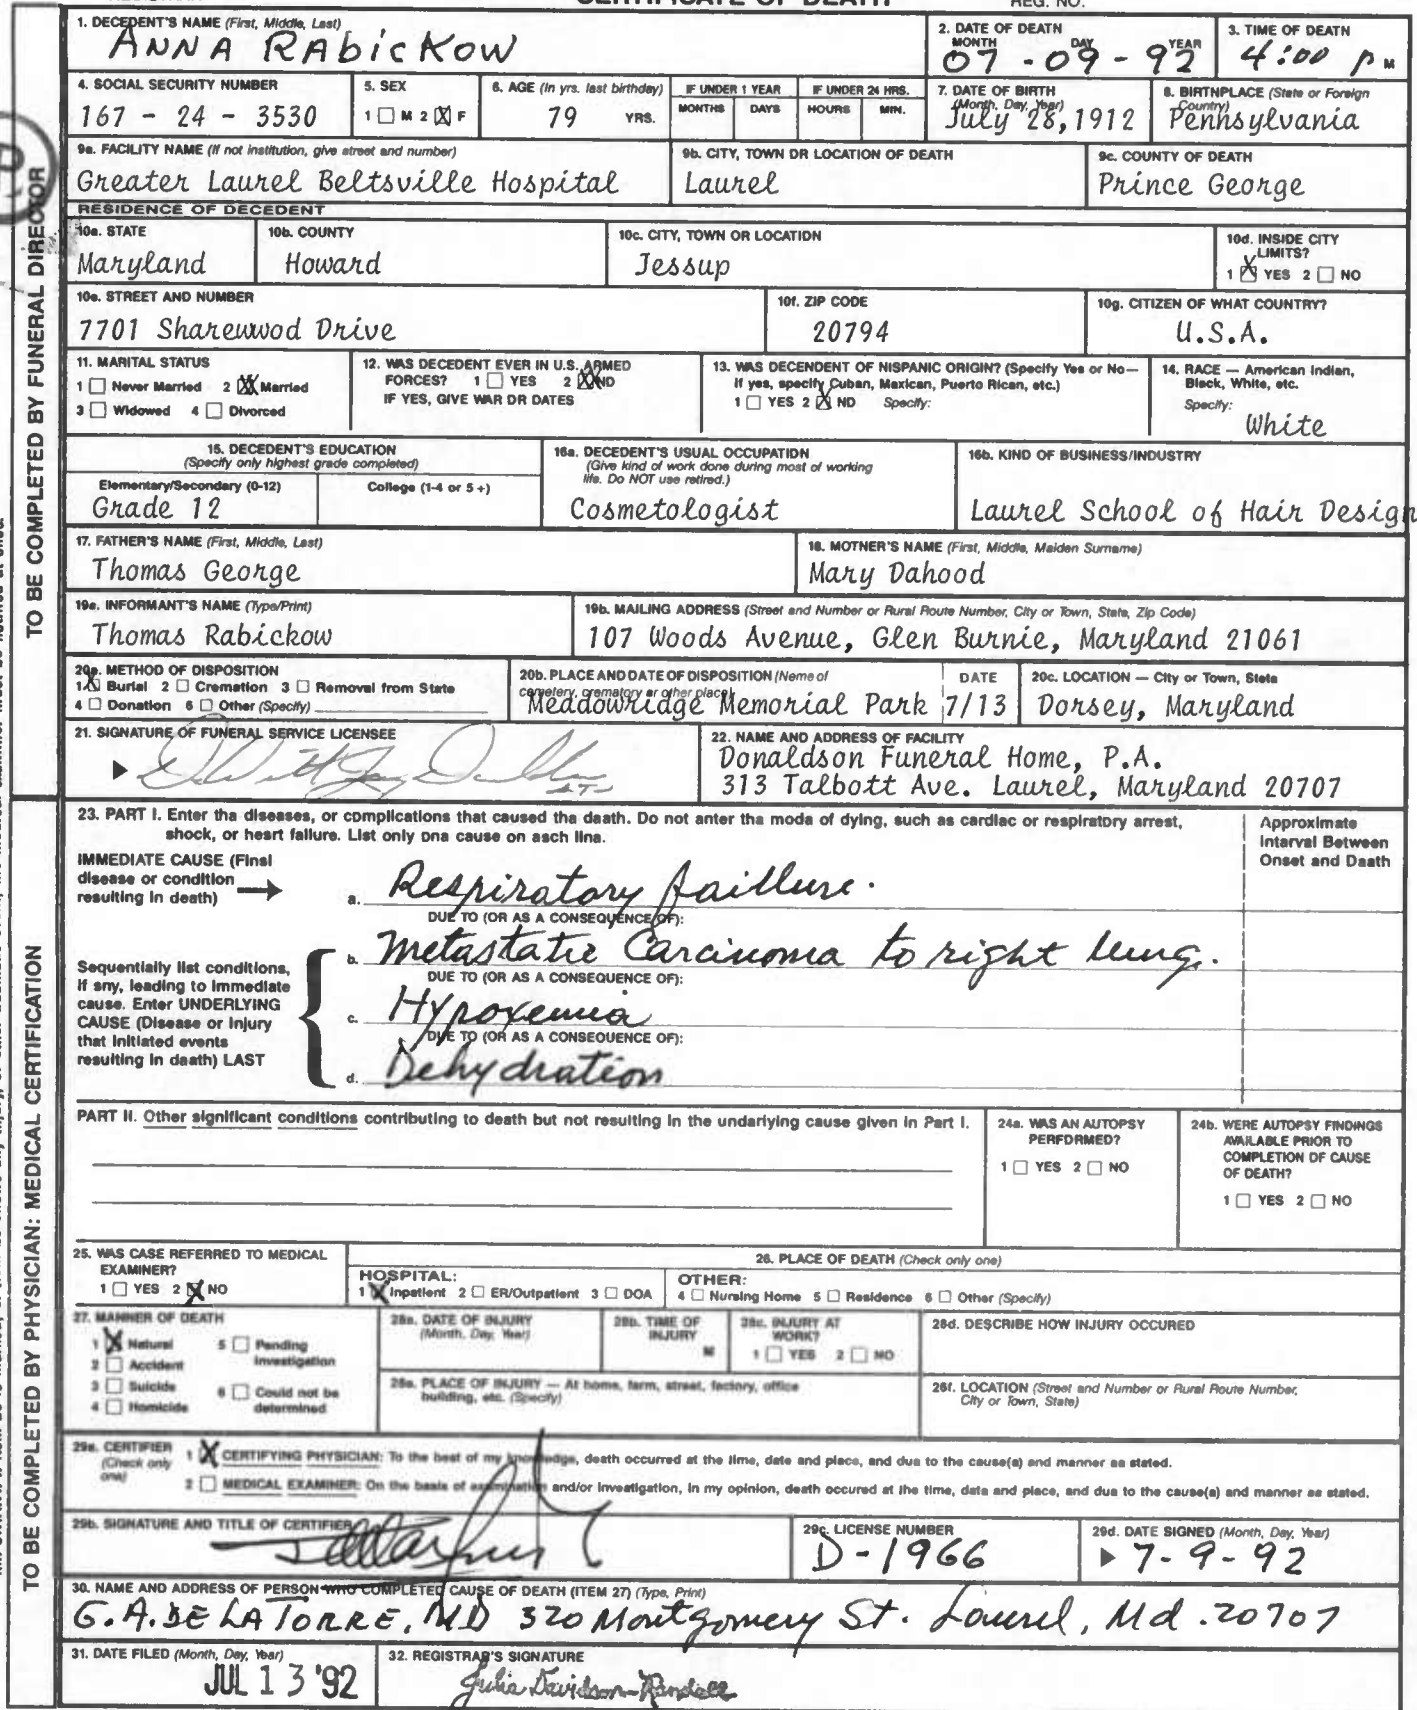 CERTIFICATE OF DEATH
REG. NO.
1. DECEDENT'S NAME (First, Middle, Last)
ANNA RABICKOW
2. DATE OF DEATH
MONTH DAY YEAR
07 - 09 - 92
3. TIME OF DEATH
4:00 P M
4. SOCIAL SECURITY NUMBER
167 - 24 - 3530
5. SEX
1 M 2 X F
6. AGE (In yrs. last birthday)
79 YRS.
IF UNDER 1 YEAR
MONTHS DAYS
IF UNDER 24 HRS.
HOURS MIN.
7. DATE OF BIRTH
(Month, Day, Year)
July 28, 1912
8. BIRTHPLACE (State or Foreign
Country)
Pennsylvania
9a. FACILITY NAME (If not institution, give street and number)
Greater Laurel Beltsville Hospital
9b. CITY, TOWN OR LOCATION OF DEATH
Laurel
9c. COUNTY OF DEATH
Prince George
RESIDENCE OF DECEDENT
10a. STATE
Maryland
10b. COUNTY
Howard
10c. CITY, TOWN OR LOCATION
Jessup
10d. INSIDE CITY
LIMITS?
1 X YES 2 NO
10e. STREET AND NUMBER
7701 Sharewwod Drive
10f. ZIP CODE
20794
10g. CITIZEN OF WHAT COUNTRY?
U.S.A.
11. MARITAL STATUS
1 Never Married 2 XX Married
3 Widowed 4 Divorced
12. WAS DECEDENT EVER IN U.S. ARMED
FORCES? 1 YES 2 XX NO
IF YES, GIVE WAR OR DATES
13. WAS DECENDENT OF HISPANIC ORIGIN? (Specify Yes or No—
If yes, specify Cuban, Mexican, Puerto Rican, etc.)
1 YES 2 X NO Specify:
14. RACE — American Indian,
Black, White, etc.
Specify:
White
15. DECEDENT'S EDUCATION
(Specify only highest grade completed)
Elementary/Secondary (0-12) College (1-4 or 5+)
Grade 12
16a. DECEDENT'S USUAL OCCUPATION
(Give kind of work done during most of working
life. Do NOT use retired.)
Cosmetologist
16b. KIND OF BUSINESS/INDUSTRY
Laurel School of Hair Design
17. FATHER'S NAME (First, Middle, Last)
Thomas George
18. MOTHER'S NAME (First, Middle, Maiden Surname)
Mary Dahood
19a. INFORMANT'S NAME (Type/Print)
Thomas Rabickow
19b. MAILING ADDRESS (Street and Number or Rural Route Number, City or Town, State, Zip Code)
107 Woods Avenue, Glen Burnie, Maryland 21061
20a. METHOD OF DISPOSITION
1 X Burial 2 Cremation 3 Removal from State
4 Donation 6 Other (Specify)
20b. PLACE AND DATE OF DISPOSITION (Name of
cemetery, crematory or other place)
Meadowridge Memorial Park
DATE
7/13
20c. LOCATION — City or Town, State
Dorsey, Maryland
21. SIGNATURE OF FUNERAL SERVICE LICENSEE
22. NAME AND ADDRESS OF FACILITY
Donaldson Funeral Home, P.A.
313 Talbott Ave. Laurel, Maryland 20707
TO BE COMPLETED BY FUNERAL DIRECTOR
23. PART I. Enter the diseases, or complications that caused the death. Do not enter the mode of dying, such as cardiac or respiratory arrest,
shock, or heart failure. List only one cause on each line.
Approximate
Interval Between
Onset and Death
IMMEDIATE CAUSE (Final
disease or condition
resulting in death)
a. Respiratory faillure.
DUE TO (OR AS A CONSEQUENCE OF):
b. Metastatic Carcinoma to right lung.
DUE TO (OR AS A CONSEQUENCE OF):
c. Hypoxemia
DUE TO (OR AS A CONSEQUENCE OF):
d. Dehydration
Sequentially list conditions,
if any, leading to immediate
cause. Enter UNDERLYING
CAUSE (Disease or injury
that initiated events
resulting in death) LAST
PART II. Other significant conditions contributing to death but not resulting in the underlying cause given in Part I.
24a. WAS AN AUTOPSY
PERFORMED?
1 YES 2 NO
24b. WERE AUTOPSY FINDINGS
AVAILABLE PRIOR TO
COMPLETION OF CAUSE
OF DEATH?
1 YES 2 NO
25. WAS CASE REFERRED TO MEDICAL
EXAMINER?
1 YES 2 X NO
26. PLACE OF DEATH (Check only one)
HOSPITAL:
1 X Inpatient 2 ER/Outpatient 3 DOA
OTHER:
4 Nursing Home 5 Residence 6 Other (Specify)
27. MANNER OF DEATH
1 X Natural 5 Pending
Investigation
2 Accident
3 Suicide 6 Could not be
determined
4 Homicide
28a. DATE OF INJURY
(Month, Day, Year)
28b. TIME OF
INJURY
M
28c. INJURY AT
WORK?
1 YES 2 NO
28d. DESCRIBE HOW INJURY OCCURED
28e. PLACE OF INJURY — At home, farm, street, factory, office
building, etc. (Specify)
28f. LOCATION (Street and Number or Rural Route Number,
City or Town, State)
29a. CERTIFIER
(Check only
one)
1 X CERTIFYING PHYSICIAN: To the best of my knowledge, death occurred at the time, date and place, and due to the cause(s) and manner as stated.
2 MEDICAL EXAMINER: On the basis of examination and/or investigation, in my opinion, death occured at the time, date and place, and due to the cause(s) and manner as stated.
29b. SIGNATURE AND TITLE OF CERTIFIER
29c. LICENSE NUMBER
D-1966
29d. DATE SIGNED (Month, Day, Year)
7-9-92
30. NAME AND ADDRESS OF PERSON WHO COMPLETED CAUSE OF DEATH (ITEM 27) (Type, Print)
G.A. DE LA TORRE, MD 320 Montgomery St. Laurel, Md. 20707
31. DATE FILED (Month, Day, Year)
JUL 13 '92
32. REGISTRAR'S SIGNATURE
Julia Davidson-Randall
TO BE COMPLETED BY PHYSICIAN: MEDICAL CERTIFICATION